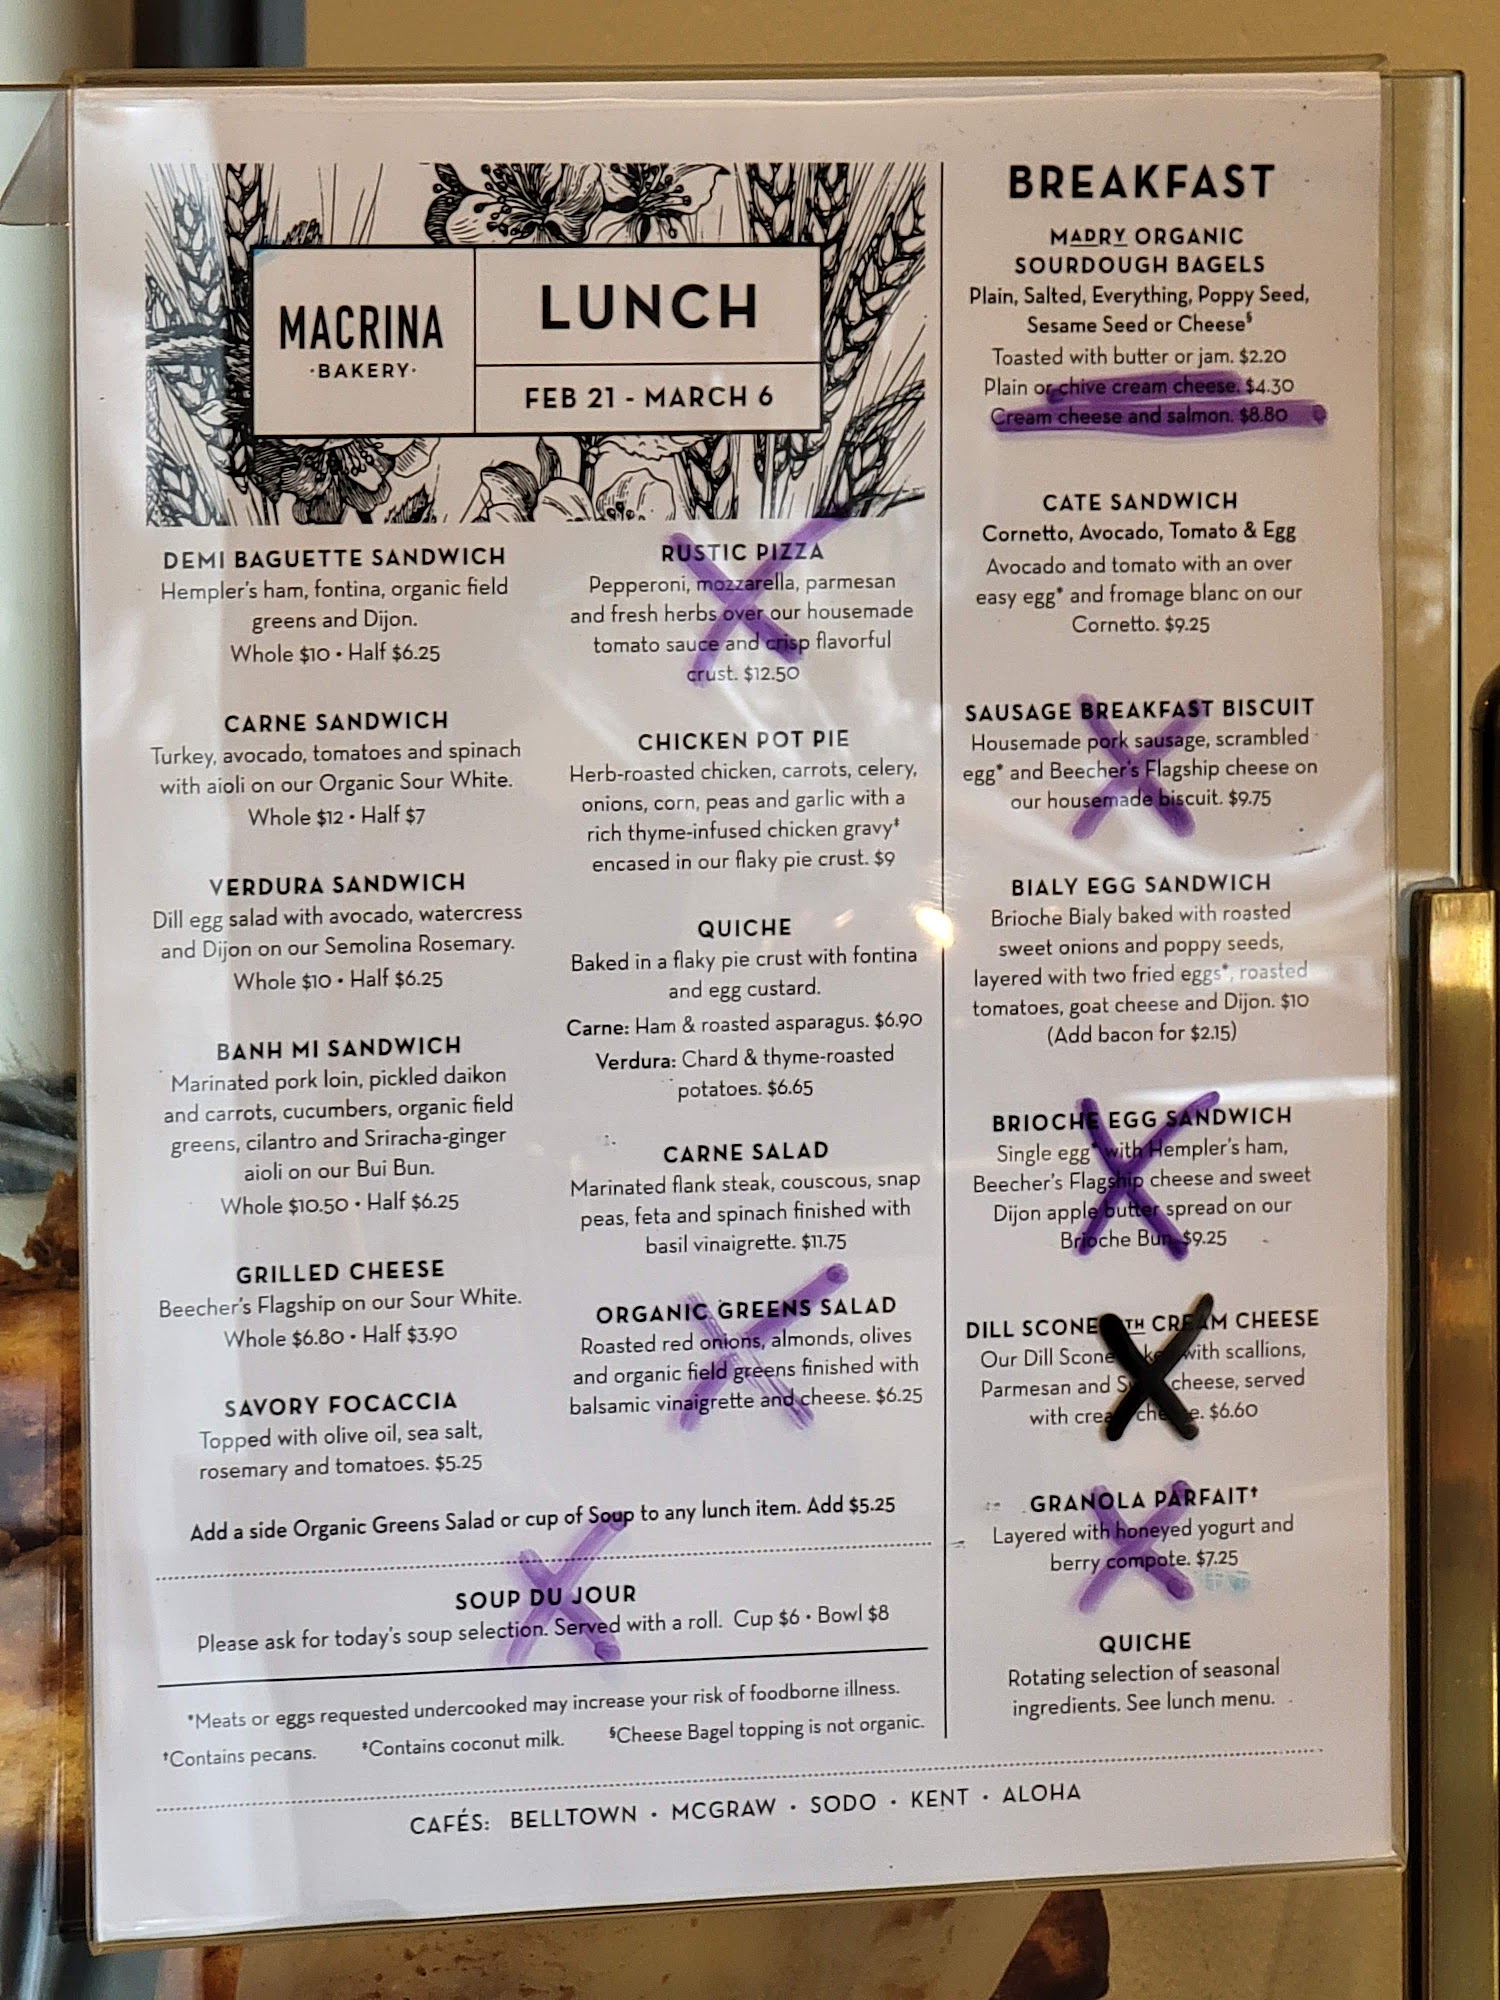 MACRINA
·BAKERY·
LUNCH
FEB 21 - MARCH 6
DEMI BAGUETTE SANDWICH
Hempler's ham, fontina, organic field
greens and Dijon.
Whole $10 • Half $6.25
CARNE SANDWICH
Turkey, avocado, tomatoes and spinach
with aioli on our Organic Sour White.
Whole $12 • Half $7
VERDURA SANDWICH
Dill egg salad with avocado, watercress
and Dijon on our Semolina Rosemary.
Whole $10 • Half $6.25
BANH MI SANDWICH
Marinated pork loin, pickled daikon
and carrots, cucumbers, organic field
greens, cilantro and Sriracha-ginger
aioli on our Bui Bun.
Whole $10.50 • Half $6.25
GRILLED CHEESE
Beecher's Flagship on our Sour White.
Whole $6.80 • Half $3.90
SAVORY FOCACCIA
Topped with olive oil, sea salt,
rosemary and tomatoes. $5.25
RUSTIC PIZZA
Pepperoni, mozzarella, parmesan
and fresh herbs over our housemade
tomato sauce and crisp flavorful
crust. $12.50
CHICKEN POT PIE
Herb-roasted chicken, carrots, celery,
onions, corn, peas and garlic with a
rich thyme-infused chicken gravy‡
encased in our flaky pie crust. $9
QUICHE
Baked in a flaky pie crust with fontina
and egg custard.
Carne: Ham & roasted asparagus. $6.90
Verdura: Chard & thyme-roasted
potatoes. $6.65
CARNE SALAD
Marinated flank steak, couscous, snap
peas, feta and spinach finished with
basil vinaigrette. $11.75
ORGANIC GREENS SALAD
Roasted red onions, almonds, olives
and organic field greens finished with
balsamic vinaigrette and cheese. $6.25
Add a side Organic Greens Salad or cup of Soup to any lunch item. Add $5.25
SOUP DU JOUR
Please ask for today's soup selection. Served with a roll. Cup $6 • Bowl $8
*Meats or eggs requested undercooked may increase your risk of foodborne illness.
†Contains pecans. ‡Contains coconut milk. §Cheese Bagel topping is not organic.
BREAKFAST
MADRY ORGANIC
SOURDOUGH BAGELS
Plain, Salted, Everything, Poppy Seed,
Sesame Seed or Cheese§
Toasted with butter or jam. $2.20
Plain or chive cream cheese. $4.30
Cream cheese and salmon. $8.80
CATE SANDWICH
Cornetto, Avocado, Tomato & Egg
Avocado and tomato with an over
easy egg* and fromage blanc on our
Cornetto. $9.25
SAUSAGE BREAKFAST BISCUIT
Housemade pork sausage, scrambled
egg* and Beecher's Flagship cheese on
our housemade biscuit. $9.75
BIALY EGG SANDWICH
Brioche Bialy baked with roasted
sweet onions and poppy seeds,
layered with two fried eggs*, roasted
tomatoes, goat cheese and Dijon. $10
(Add bacon for $2.15)
BRIOCHE EGG SANDWICH
Single egg* with Hempler's ham,
Beecher's Flagship cheese and sweet
Dijon apple butter spread on our
Brioche Bun. $9.25
DILL SCONE CREAM CHEESE
Our Dill Scone with scallions,
Parmesan and cheese, served
with cream cheese. $6.60
GRANOLA PARFAIT†
Layered with honeyed yogurt and
berry compote. $7.25
QUICHE
Rotating selection of seasonal
ingredients. See lunch menu.
CAFÉS: BELLTOWN • MCGRAW • SODO • KENT • ALOHA